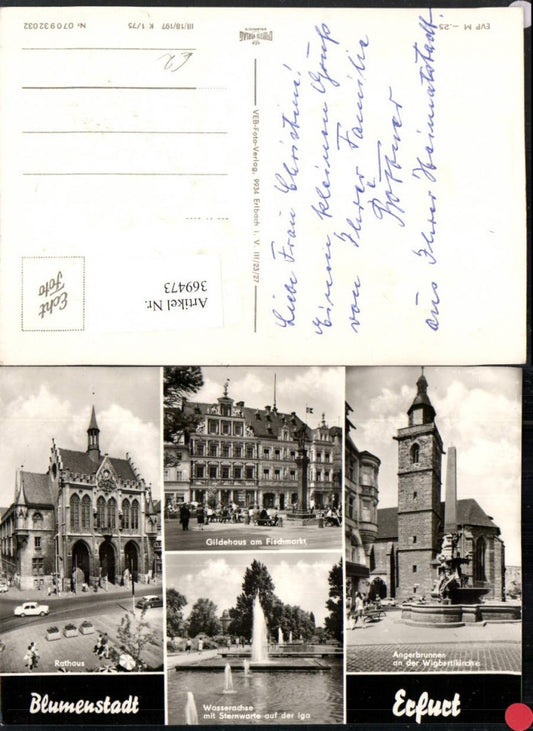 EVP M -.25
VEB
PHOTO VERLAG
III/18/197 K 1/75
Nr 070932032
£2
VEB-Foto-Verlag, 9934 Erlbach i. V. III/23/27
Echt
Foto
Artikel Nr.
369473
Liebe Frau Christine!
Einen kleinen Gruß
von Ihrer Familie
aus Ihrer Heimatstadt.
Rathaus
Gildehaus am Fischmarkt
Wasserachse
mit Sternwarte auf der iga
Angerbrunnen
an der Wigbertikirche
Blumenstadt
Erfurt